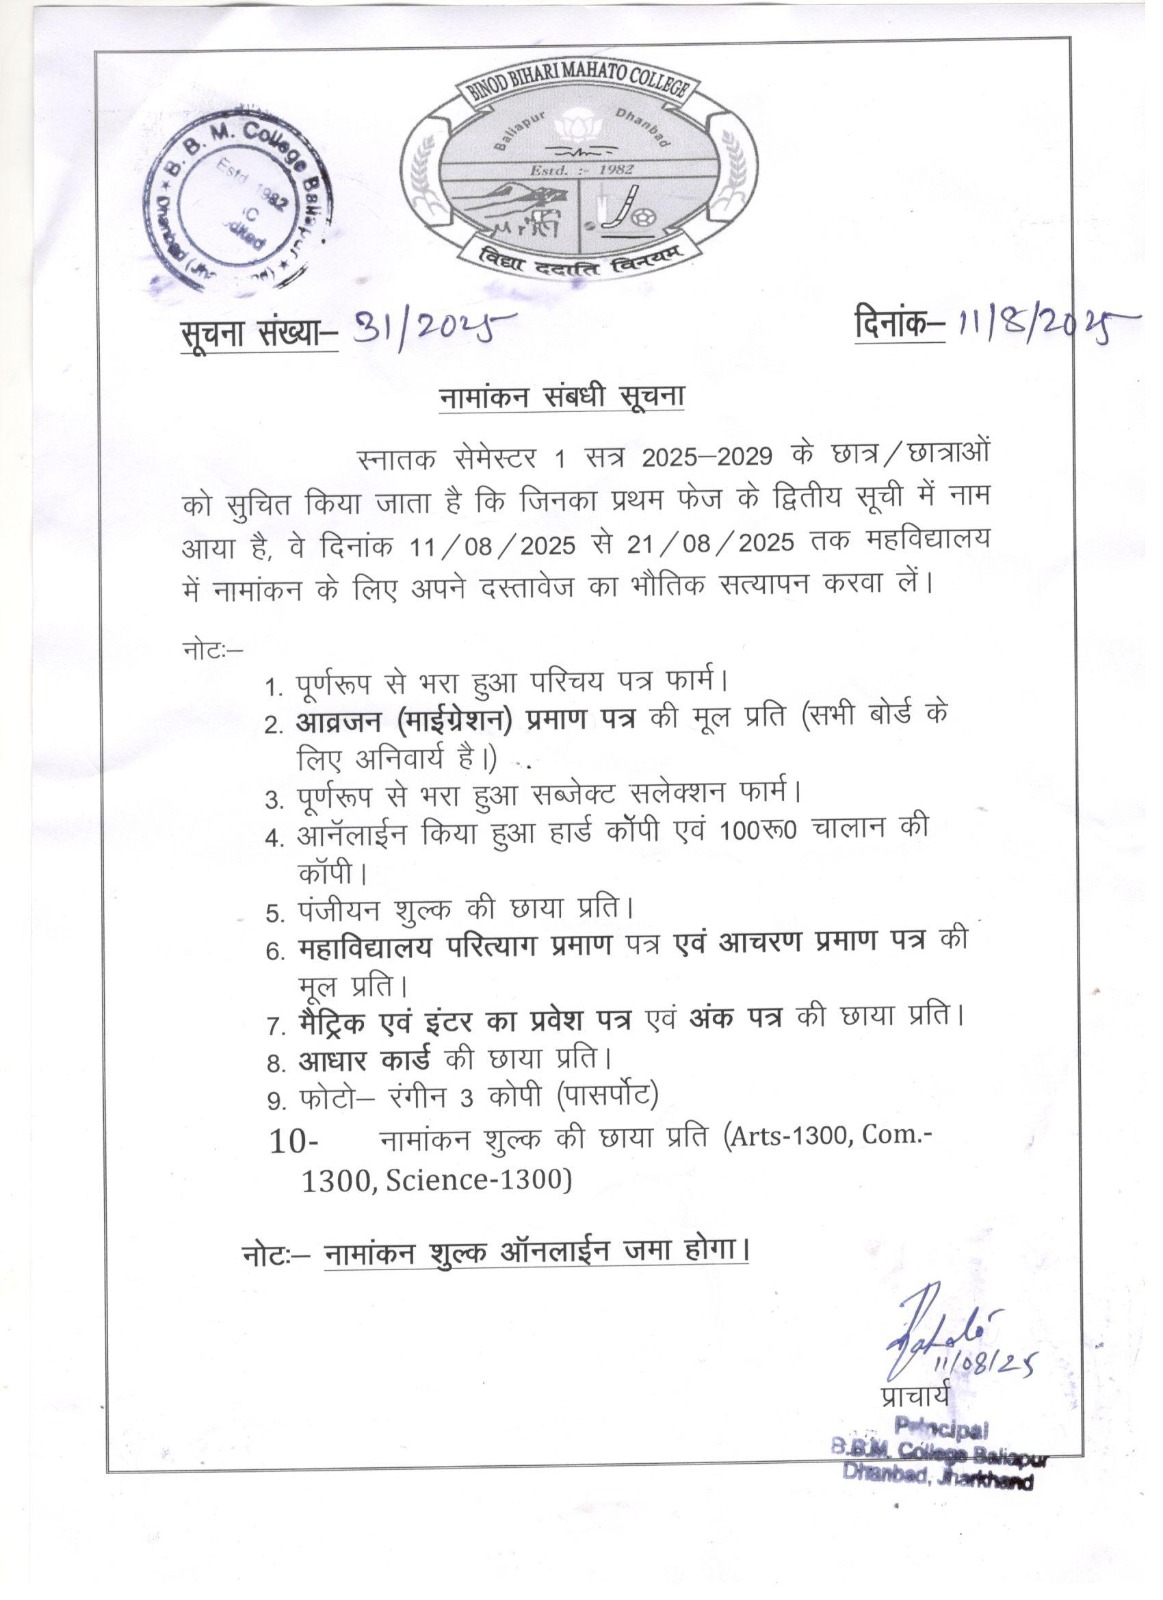 BINOD BIHARI MAHATO COLLEGE
Baliapur Dhanbad
Estd. :- 1982
विद्या ददाति विनयम
B. B. M. College Baliapur
Estd 1982
सूचना संख्या– 31/2025
दिनांक– 11/8/2025
नामांकन संबधी सूचना
स्नातक सेमेस्टर 1 सत्र 2025–2029 के छात्र/छात्राओं
को सुचित किया जाता है कि जिनका प्रथम फेज के द्वितीय सूची में नाम
आया है, वे दिनांक 11/08/2025 से 21/08/2025 तक महविद्यालय
में नामांकन के लिए अपने दस्तावेज का भौतिक सत्यापन करवा लें।
नोटः–
1. पूर्णरूप से भरा हुआ परिचय पत्र फार्म।
2. आव्रजन (माईग्रेशन) प्रमाण पत्र की मूल प्रति (सभी बोर्ड के
लिए अनिवार्य है।)
3. पूर्णरूप से भरा हुआ सब्जेक्ट सलेक्शन फार्म।
4. आनॅलाईन किया हुआ हार्ड कॉपी एवं 100रू0 चालान की
कॉपी।
5. पंजीयन शुल्क की छाया प्रति।
6. महाविद्यालय परित्याग प्रमाण पत्र एवं आचरण प्रमाण पत्र की
मूल प्रति।
7. मैट्रिक एवं इंटर का प्रवेश पत्र एवं अंक पत्र की छाया प्रति।
8. आधार कार्ड की छाया प्रति।
9. फोटो– रंगीन 3 कोपी (पासर्पोट)
10- नामांकन शुल्क की छाया प्रति (Arts-1300, Com.-
1300, Science-1300)
नोटः– नामांकन शुल्क ऑनलाईन जमा होगा।
11/08/25
प्राचार्य
Principal
B.B.M. College Baliapur
Dhanbad, Jharkhand